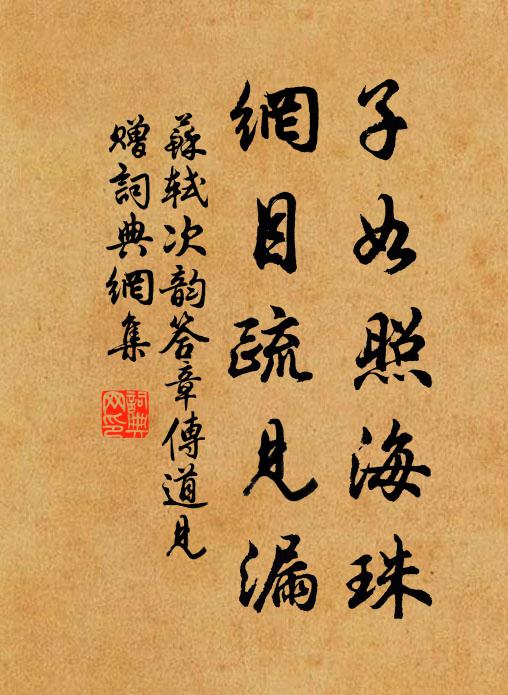 子如照海珠
網目疏見漏
蘇軾次韵答章傳道見
贈詞典網集
詞典
网印